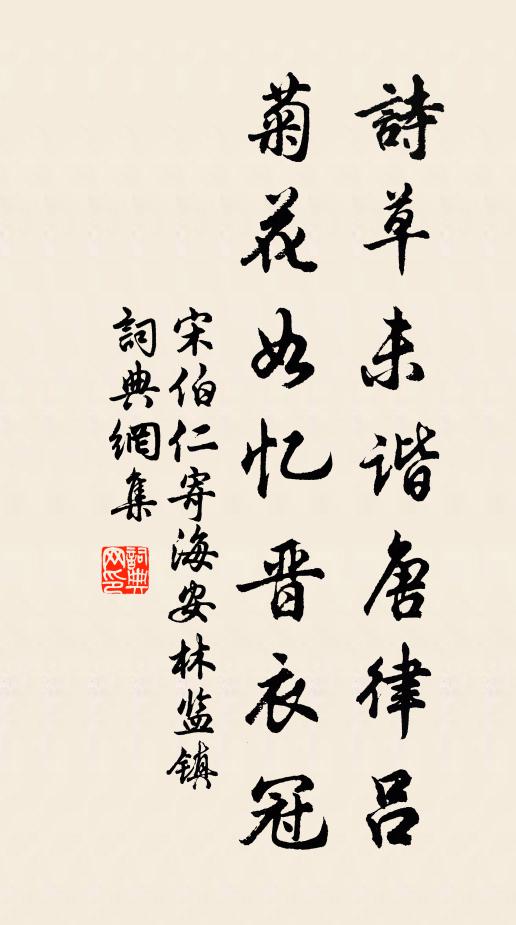 詩草未谐唐律吕
菊花如忆晋衣冠
宋伯仁寄海安林监镇
詞典網集
詞典网印